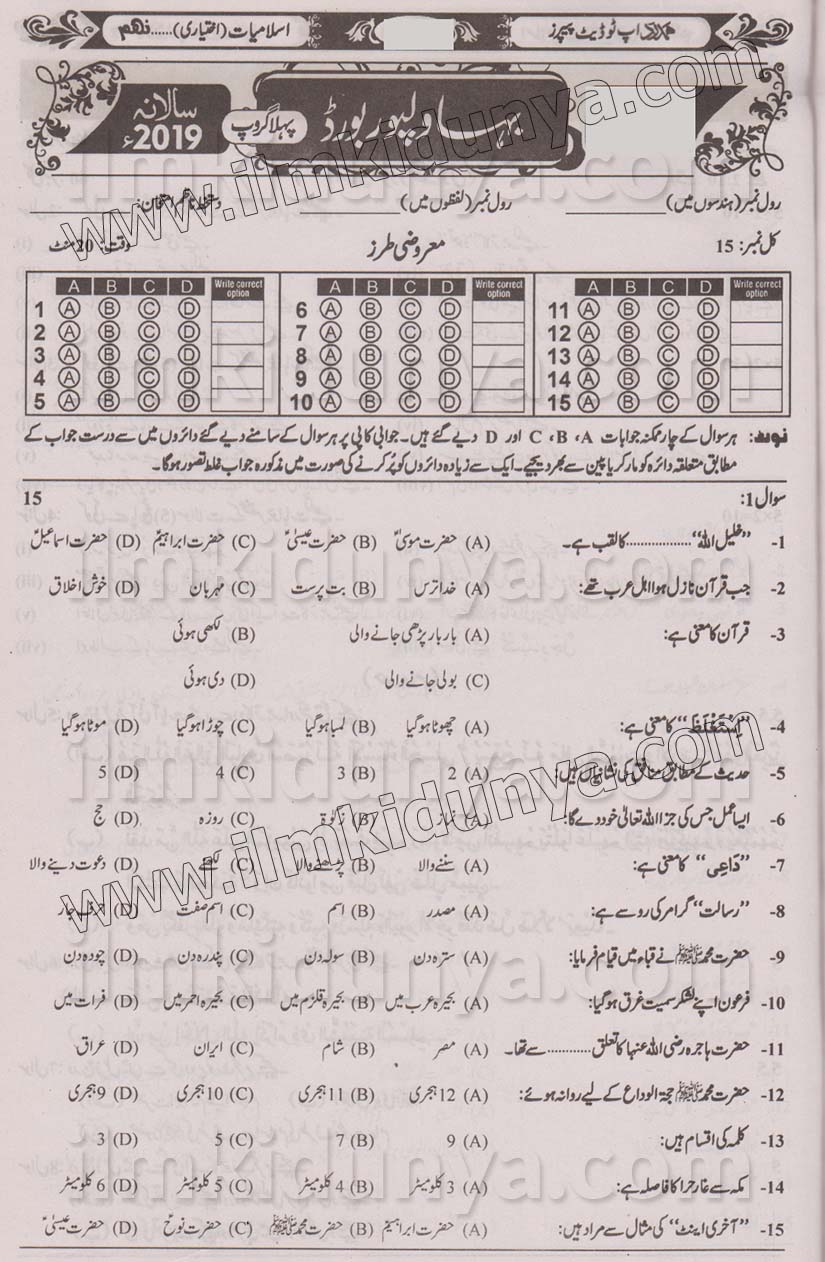 ہمدرد اپ ٹو ڈیٹ پیپرز
اسلامیات (اختیاری)......نہم
بہاولپور بورڈ
پہلا گروپ
سالانہ
2019ء
رول نمبر (ہندسوں میں)__________ رول نمبر (لفظوں میں)__________ دستخط ناظم امتحان:__________
کل نمبر: 15 معروضی طرز وقت: 20 منٹ
A B C D Write correct option A B C D Write correct option A B C D Write correct option
1 A B C D 6 A B C D 11 A B C D
2 A B C D 7 A B C D 12 A B C D
3 A B C D 8 A B C D 13 A B C D
4 A B C D 9 A B C D 14 A B C D
5 A B C D 10 A B C D 15 A B C D
نوٹ: ہر سوال کے چار ممکنہ جوابات A، B، C اور D دیے گئے ہیں۔ جوابی کاپی پر ہر سوال کے سامنے دیے گئے دائروں میں سے درست جواب کے
مطابق متعلقہ دائرہ کو مارکر یا پین سے بھر دیجیے۔ ایک سے زیادہ دائروں کو پُر کرنے کی صورت میں مذکورہ جواب غلط تصور ہوگا۔
سوال 1: 15
-1 ”خلیل اللہ“ ................. کا لقب ہے۔ (A) حضرت موسیٰؑ (B) حضرت عیسیٰؑ (C) حضرت ابراہیمؑ (D) حضرت اسماعیلؑ
-2 جب قرآن نازل ہوا اہل عرب تھے: (A) خدا ترس (B) بت پرست (C) مہربان (D) خوش اخلاق
-3 قرآن کا معنی ہے: (A) بار بار پڑھی جانے والی (B) لکھی ہوئی
(C) بولی جانے والی (D) دی ہوئی
-4 ”اِسْتَغْلَظَ“ کا معنی ہے: (A) چھوٹا ہوگیا (B) لمبا ہوگیا (C) چوڑا ہوگیا (D) موٹا ہوگیا
-5 حدیث کے مطابق منافق کی نشانیاں ہیں: (A) 2 (B) 3 (C) 4 (D) 5
-6 ایسا عمل جس کی جزا اللہ تعالیٰ خود دے گا: (A) نماز (B) زکوٰۃ (C) روزہ (D) حج
-7 ”دَاعِی“ کا معنی ہے: (A) سننے والا (B) پڑھنے والا (C) لکھنے (D) دعوت دینے والا
-8 ”رسالت“ گرامر کی رو سے ہے: (A) مصدر (B) اسم (C) اسم صفت (D) حرف جار
-9 حضرت محمد ﷺ نے قباء میں قیام فرمایا: (A) سترہ دن (B) سولہ دن (C) پندرہ دن (D) چودہ دن
-10 فرعون اپنے لشکر سمیت غرق ہوگیا: (A) بحیرہ عرب میں (B) بحیرہ قلزم میں (C) بحیرہ احمر میں (D) فرات میں
-11 حضرت ہاجرہ رضی اللہ عنہا کا تعلق ........... سے تھا۔ (A) مصر (B) شام (C) ایران (D) عراق
-12 حضرت محمد ﷺ حجۃ الوداع کے لیے روانہ ہوئے: (A) 12 ہجری (B) 11 ہجری (C) 10 ہجری (D) 9 ہجری
-13 کلمہ کی اقسام ہیں: (A) 9 (B) 7 (C) 5 (D) 3
-14 مکہ سے غار حرا کا فاصلہ ہے: (A) 3 کلومیٹر (B) 4 کلومیٹر (C) 5 کلومیٹر (D) 6 کلومیٹر
-15 ”آخری اینٹ“ کی مثال سے مراد ہیں: (A) حضرت ابراہیمؑ (B) حضرت محمد ﷺ (C) حضرت نوحؑ (D) حضرت عیسیٰؑ
www.ilmkidunya.com
www.ilmkidunya.com
ilmkidunya.com
ilmkidunya.com
ilmkidunya.com
ilmkidunya.com
ilmkidunya.com
ilmkidunya.com